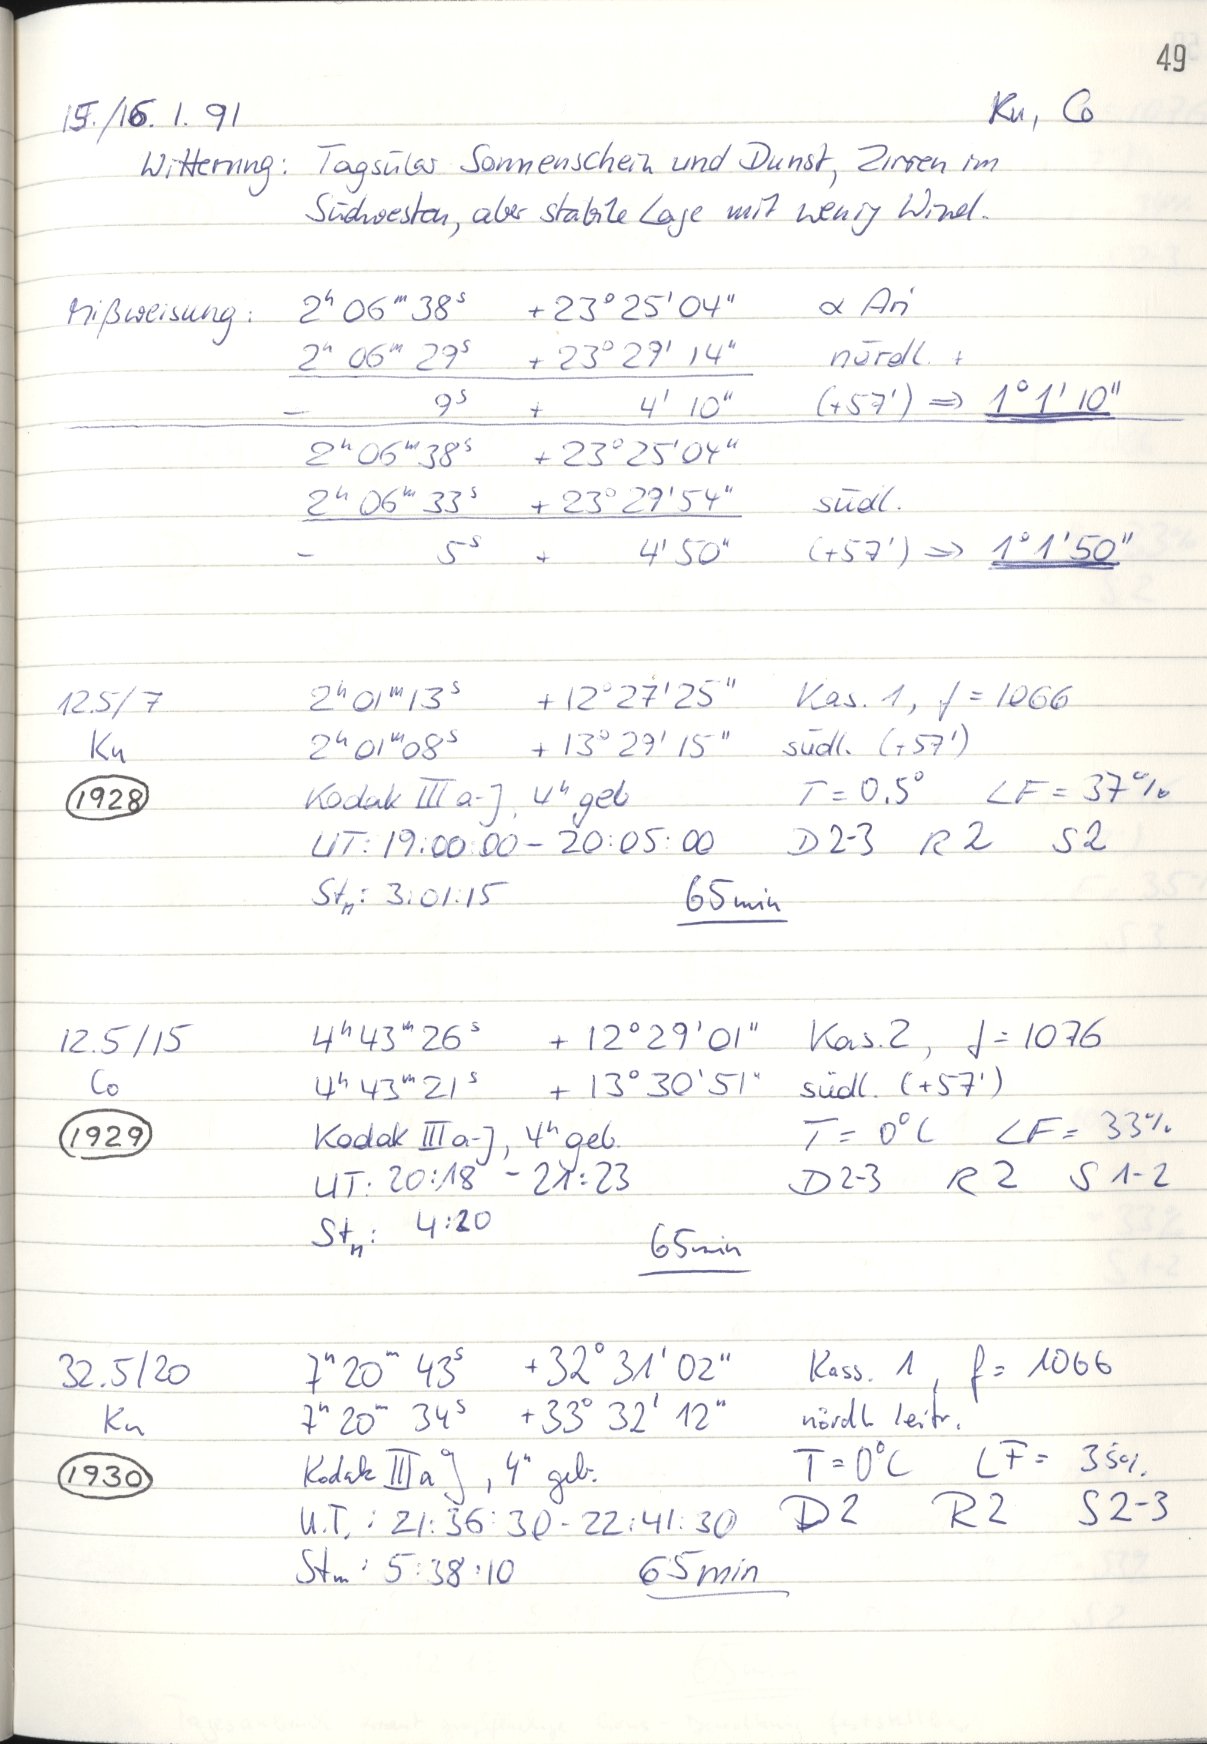 49
15./16. 1. 91 Ku, Co
Witterung: Tagsüber Sonnenschein und Dunst, Zirren im
Südwesten, aber stabile Lage mit wenig Wind.
Mißweisung: 2h 06m 38s + 23° 25' 04" α Ari
2h 06m 29s + 23° 29' 14" nördl. +
- 9s + 4' 10" (+57') ⇒ 1° 1' 10"
2h 06m 38s + 23° 25' 04"
2h 06m 33s + 23° 29' 54" südl.
- 5s + 4' 50" (+57') ⇒ 1° 1' 50"
12.5/7 2h 01m 13s + 12° 27' 25" Kas. 1, f = 1066
Ku 2h 01m 08s + 13° 29' 15" südl. (+57')
1928 Kodak III a-J, 4h geb T = 0.5° LF = 37%
UT: 19:00:00 - 20:05:00 D 2-3 R 2 S 2
Stn: 3:01:15 65 min
12.5/15 4h 43m 26s + 12° 29' 01" Kas. 2, f = 1076
Co 4h 43m 21s + 13° 30' 51" südl. (+57')
1929 Kodak III a-J, 4h geb. T = 0°C LF = 33%
UT: 20:18 - 21:23 D 2-3 R 2 S 1-2
Stn: 4:20 65 min
32.5/20 7h 20m 43s + 32° 31' 02" Kass. 1, f = 1066
Ku 7h 20m 34s + 33° 32' 12" nördl. Leitr.
1930 Kodak III a J, 4h geb. T = 0°C LF = 35%.
U.T.: 21:36:30 - 22:41:30 D 2 R 2 S 2-3
Stm: 5:38:10 65 min